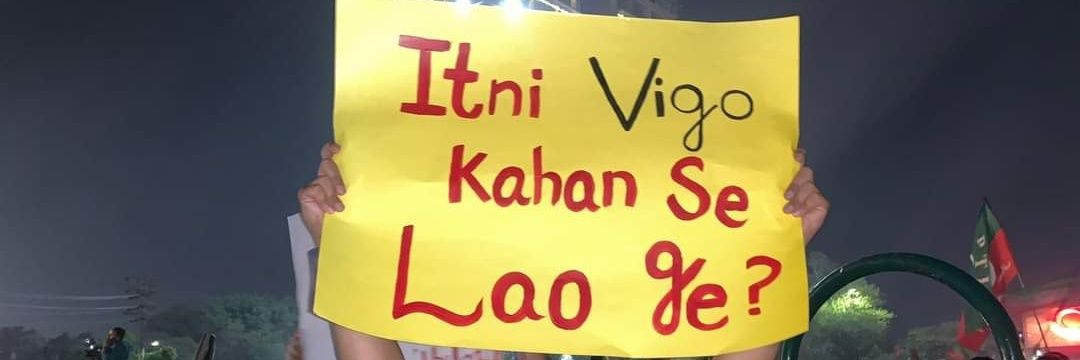 Itni Vigo
Kahan Se
Lao ge?